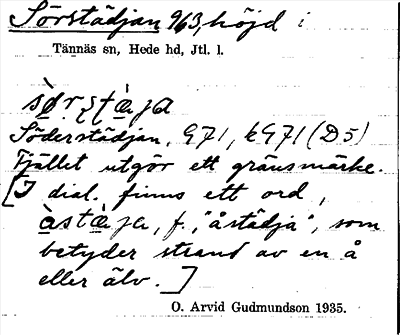 Sörstädjan 963, höjd i
Tännäs sn, Hede hd, Jtl. l.
sø̀rʂtæ̀ja
Söderstädjan, G71, kG71 (D5)
Fjället utgör ett gränsmärke.
[I dial. finns ett ord,
àstæ̀ja, f., "åstädja", som
betyder strand av en å
eller älv.]
O. Arvid Gudmundson 1935.